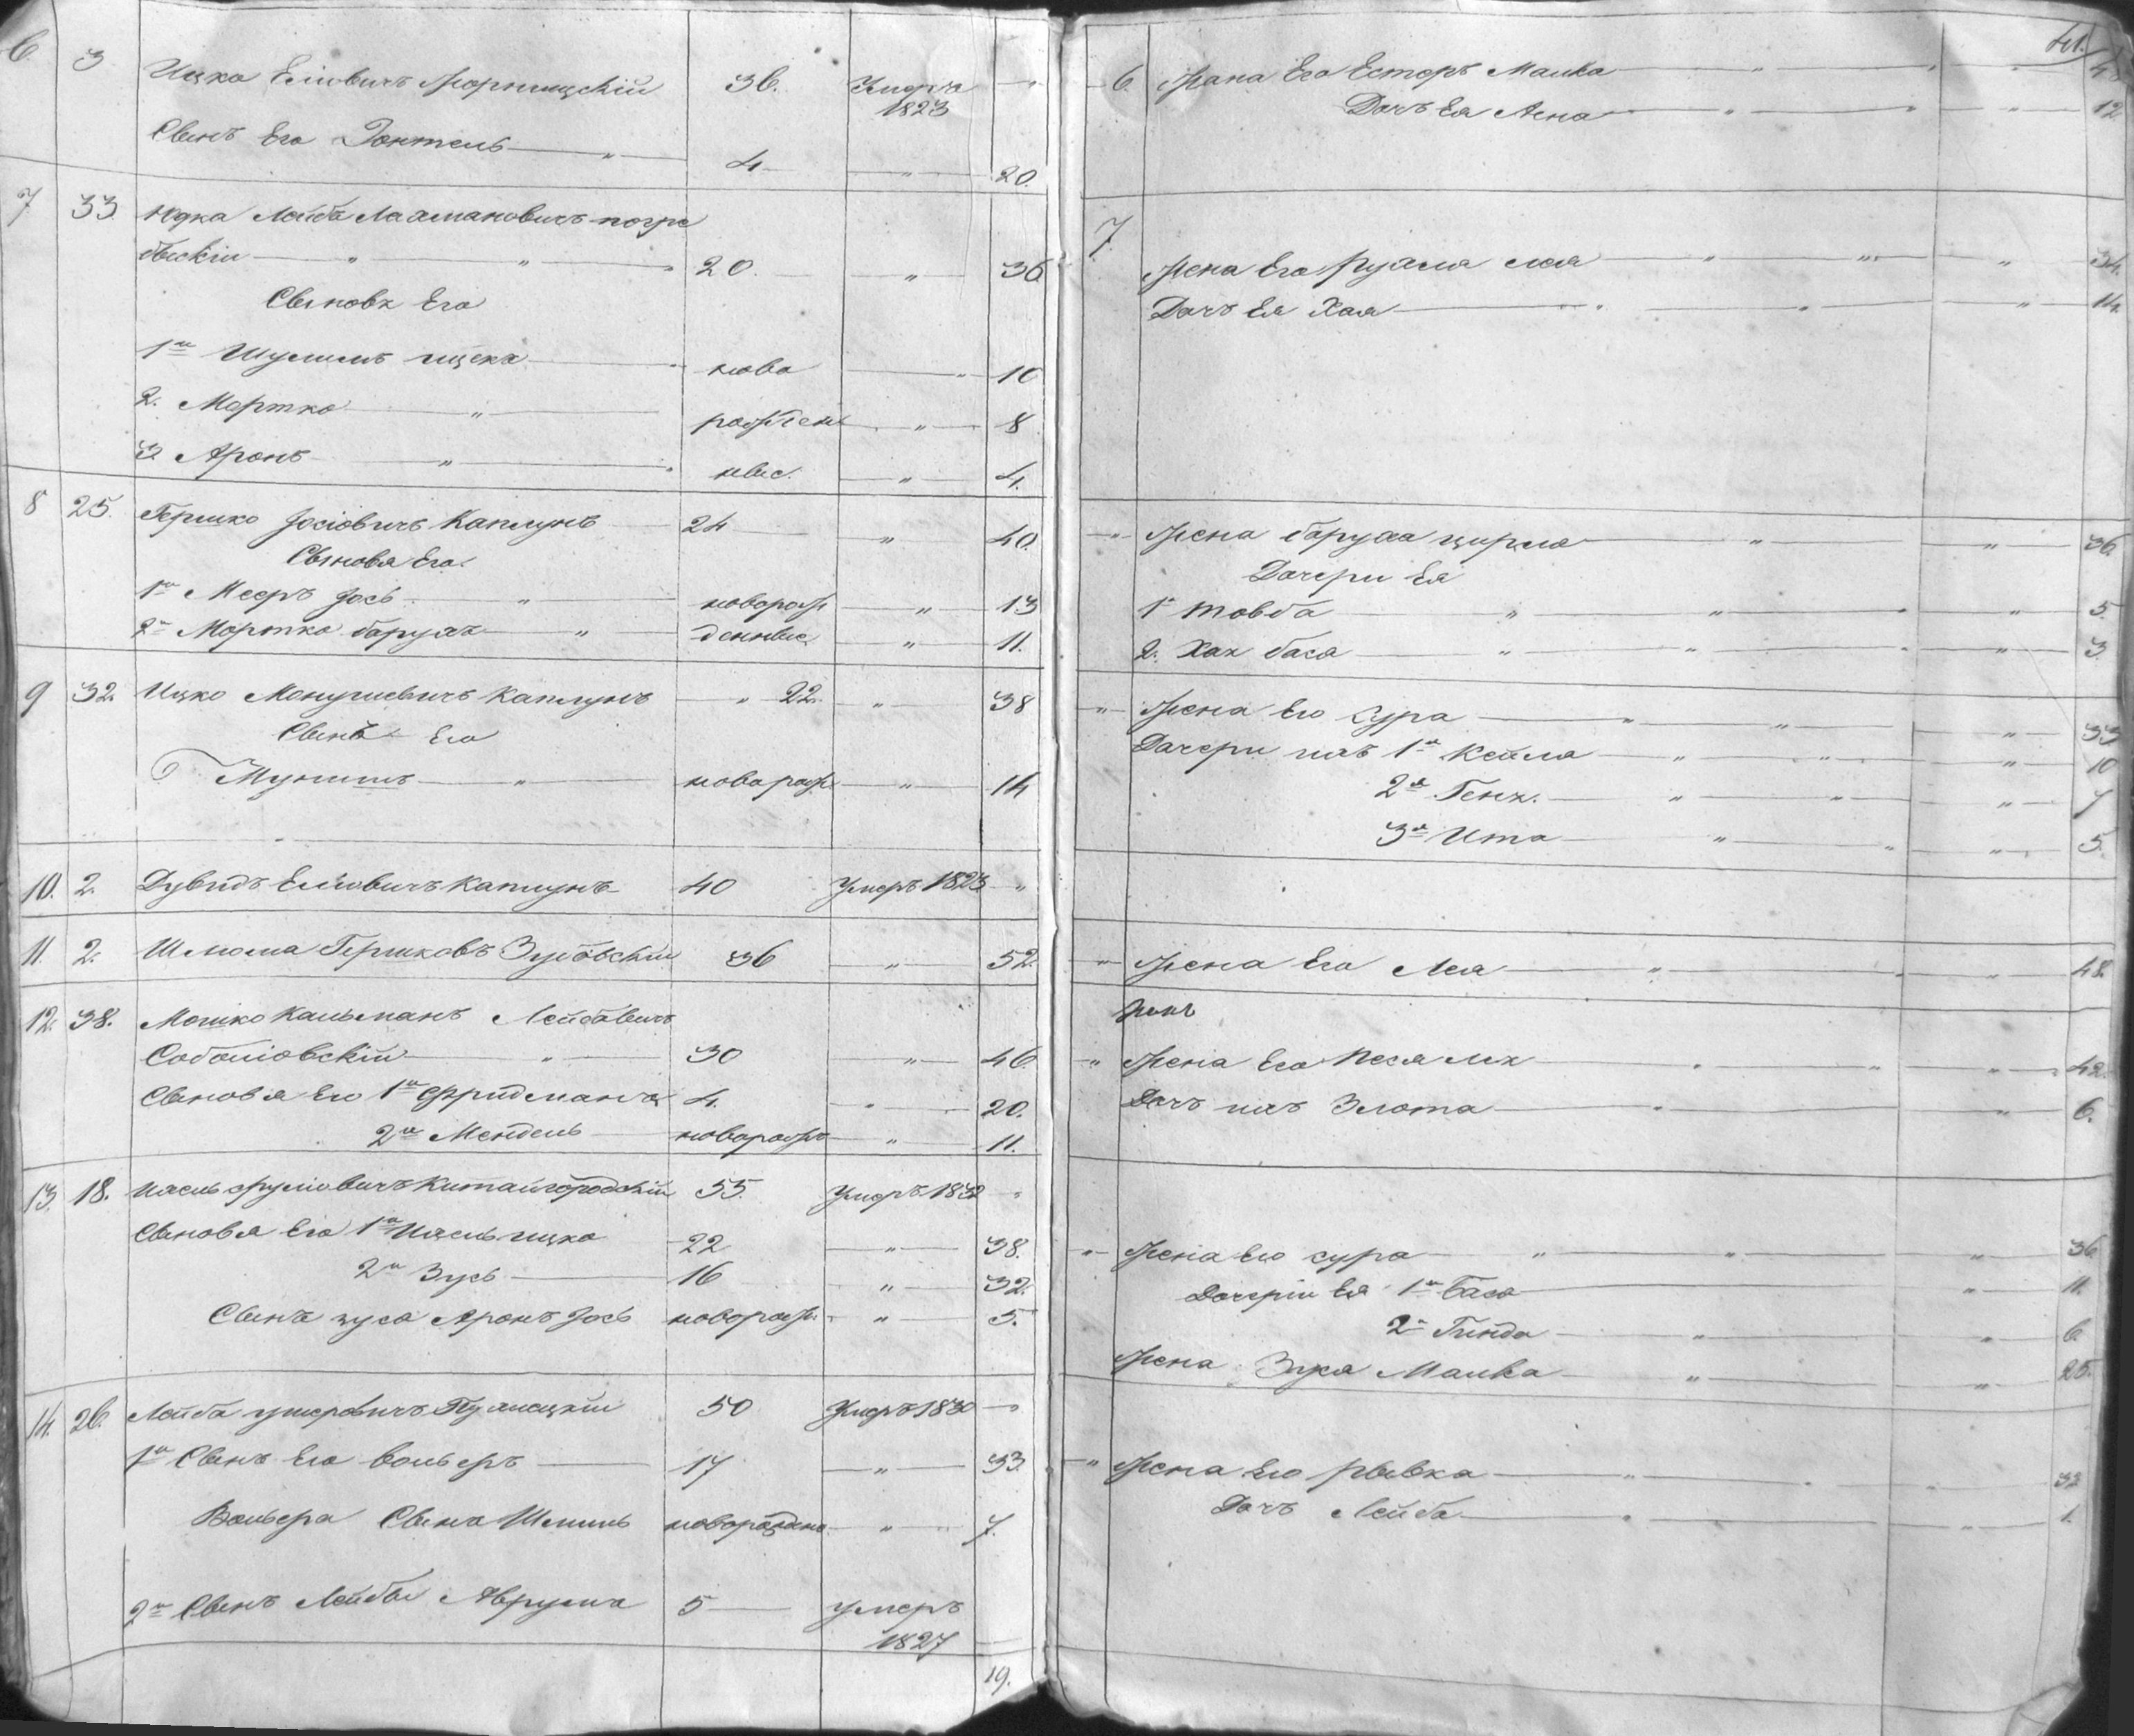 6. 3 Ицко Еліовичъ 36. Умеръ 1823
Сынъ Его 4 20.
7 33. Юдка Лейба Лахмановичъ погре
бискій 20. 36
Сыновя Его
1й Шулимъ ицекъ ново 10
2. Мортко рожден 8
3 Аронъ ныс. 4.
8 25. Гершко Іосіовичъ Каплунъ 24 40.
Сыновя Его.
1й Мееръ Іось новорож 13
2й Мортко барухъ денныс 11.
9 32. Ицко Монушевичъ Каплунъ 22. 38
Сынъ Его
Мунишъ новорож. 14
10. 2. Дувидъ Еліовичъ Каплунъ 40 Умеръ 1823
11. 2. Шлиома Гершковъ 36 52.
12. 38. Мошко Кальманъ Лейбавичъ
Соболіовскій 30 46
Сыновя Его 1й Фридманъ 4. 20.
2й Мендель новорож 11.
13. 18. Ихель сруліовичъ Китайгородскій 55. Умеръ 1832
Сыновя Его 1й Ихель ицко 22 38.
2й Зусь 16 32.
Сынъ зуса Аронъ Іось новорож. 5.
14. 26. Лейба ушеровичъ 50 Умеръ 1830
1й Сынъ Его Вольеръ 17 33.
Вольера Сынъ Шмиль новорождно. 7.
2й Сынъ Лейбы Аврумъ 5 умеръ
1827
19.
41.
6. Жана Его Естеръ Малка
Дочъ Ея Лена 12
7. Жена Его Рухля лея 34.
Дочъ Ея Хая 14.
Жена баруха цирля 36.
Дочери Ея
1я товба 5.
2. Хая баса 3
Жена Его Сура 33
Дочери ихъ 1я Кейла 10
2я Геня. 7
3я Ита 5.
Жена Его Лея 48.
Жена Его Песя лея 42.
Дочъ ихъ Злота 6.
Жена Его сура 36
Дочеріи Ея 1я баса 11.
2я Гинда 6
Жена Зуса Малка 25.
Жена Его рывка 32
Дочъ Лейба 1.